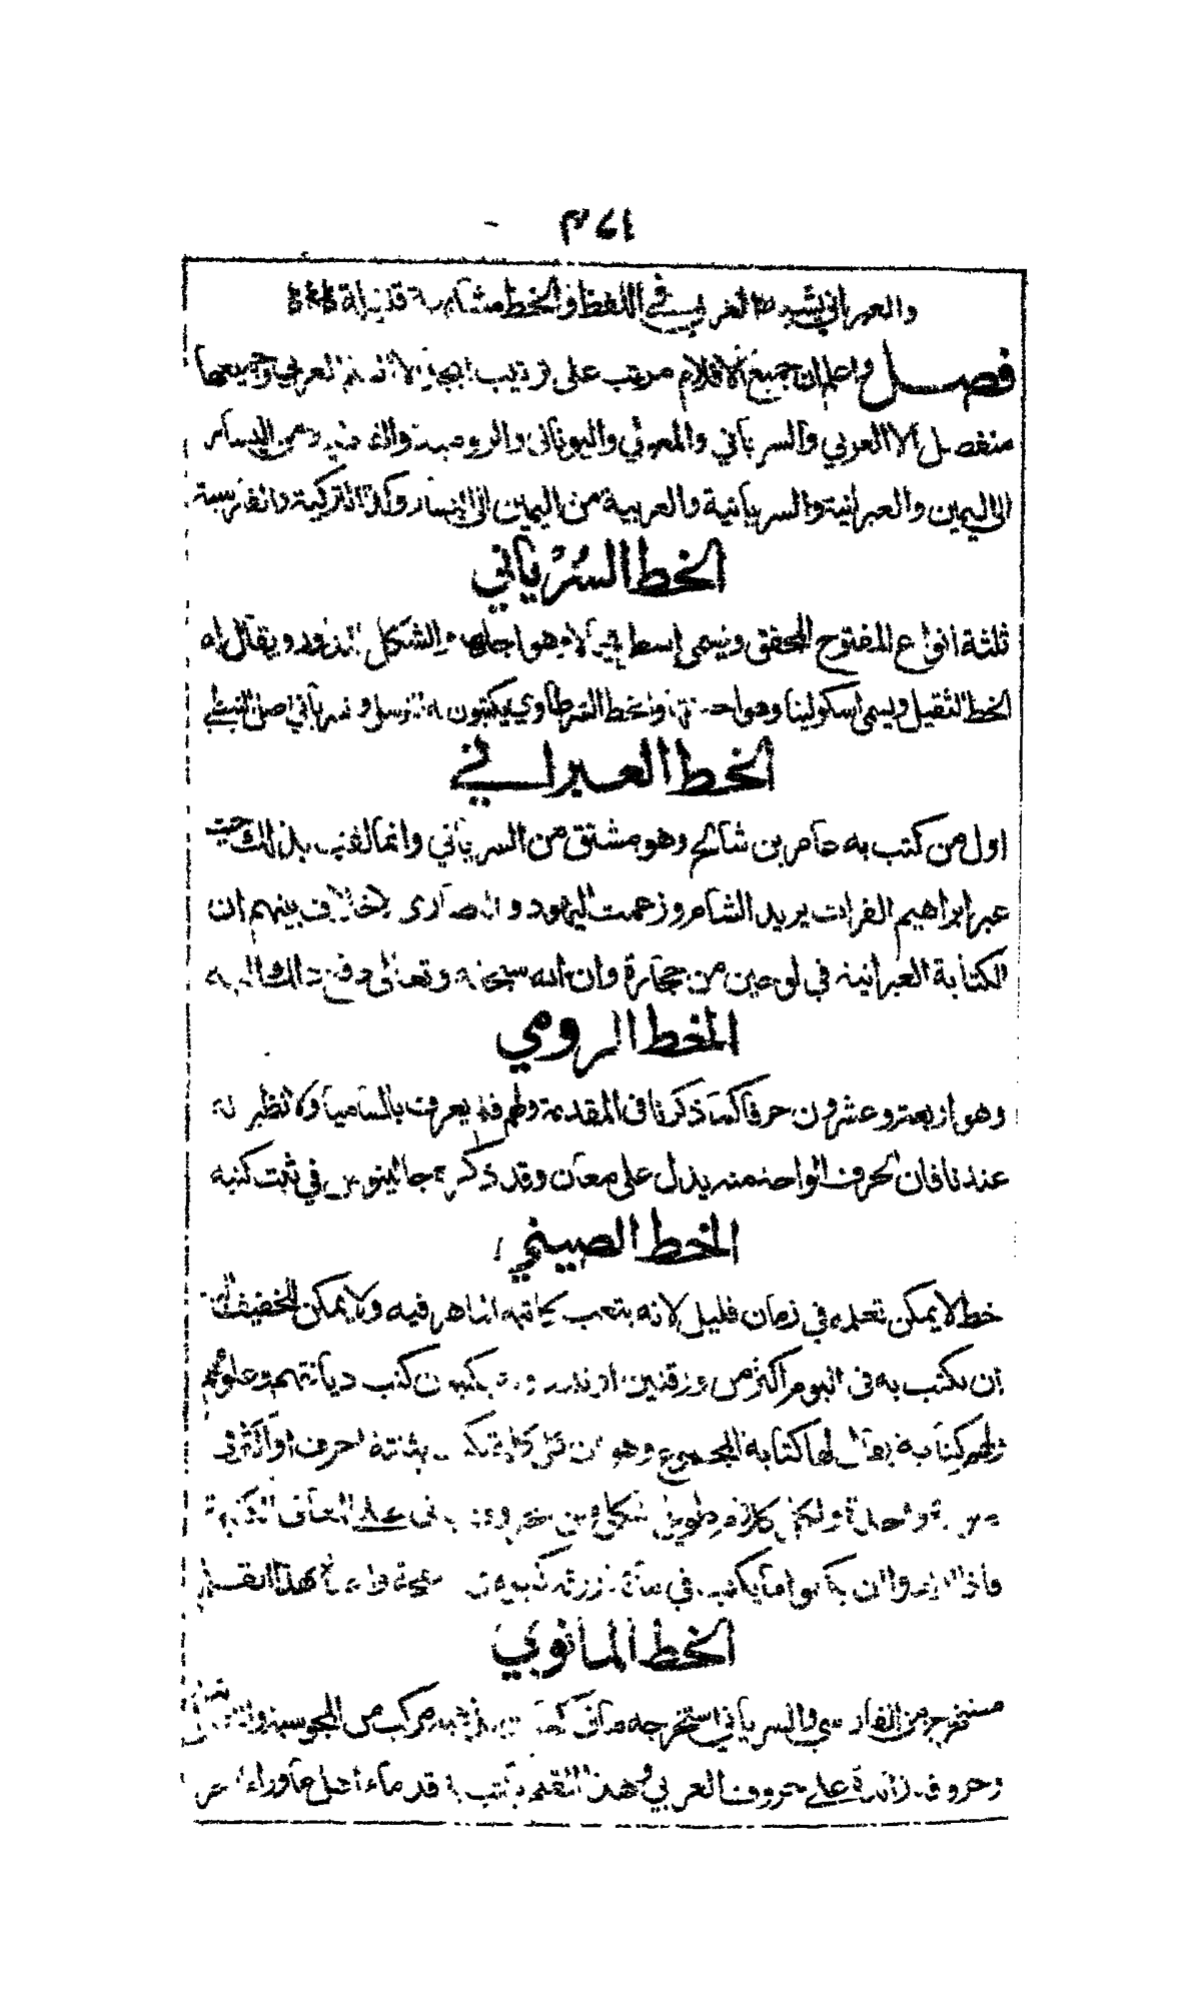 والعبراني يشبه العربي في اللفظ والخط مشابهة قليلة
فصل واعلم ان جميع الاقلام مرتب على ترتيب ابجد الا القلم العربي وجميعها
منفصل الا العربي والسرياني والمغولي واليوناني والرومية من اليسار
الى اليمين والعبرانية والسريانية والعربية من اليمين الى اليسار وكذا التركية والفارسية
الخط السرياني
ثلثة انواع المفتوح المحقق ويسمى وهو اجلها والشكل المدور ويقال له
الخط الثقيل ويسمى اسكوليثا وهو احسنها والخط الشرطاوي يكتبون به الترسل والسرياني اصل النبطي
الخط العبراني
اول من كتب به عامر بن شالح وهو مشتق من السرياني وانما لقب بذلك حيث
عبر ابراهيم الفرات يريد الشام وزعمت اليهود والنصارى لا خلاف بينهم ان
الكتابة العبرانية في لوحين من حجارة وان الله سبحانه وتعالى دفع ذالك اليه
الخط الرومي
وهو اربعة وعشرون حرفا كما ذكرنا في المقدمة ولهم قلم يعرف بالساميا ولا نظير له
عندنا فان الحرف الواحد منه يدل على معان وقد ذكره جالينوس في ثبت كتبه
الخط الصيني
خط لا يمكن تعلمه في زمان قليل لانه يتعب كاتبه الماهر فيه ولا يمكن للخفيف اليد
ان يكتب به في اليوم اكثر من ورقتين او ثلثة وبه يكتبون كتب ديانتهم وعلومهم
ولهم كتابة يقال لها كتابة المجموع وهو ان كل كلمة تكتب بثلثة احرف او اكثر في
صورة واحدة ولكل كلام طويل شكل من الحروف ياتي على المعاني الكثيرة
فاذا ارادوا ان يكتبوا ما يكتب في مائة ورقة كتبوه في صفحة واحدة بهذا القلم
الخط المانوي
مستخرج من الفارسي والسرياني استخرجه ماني كما ان مذهبه مركب من المجوسية والنصرانية
وحروفه زائدة على حروف العربي وهذا القلم يكتب به قدماء اهل ماوراء النهر